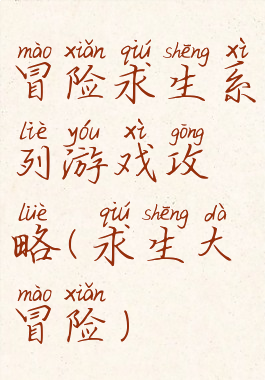 mào xiǎn qiú shēng xì
冒险求生系
liè yóu xì gōng
列游戏攻
lüè qiú shēng dà
略(求生大
mào xiǎn
冒险)